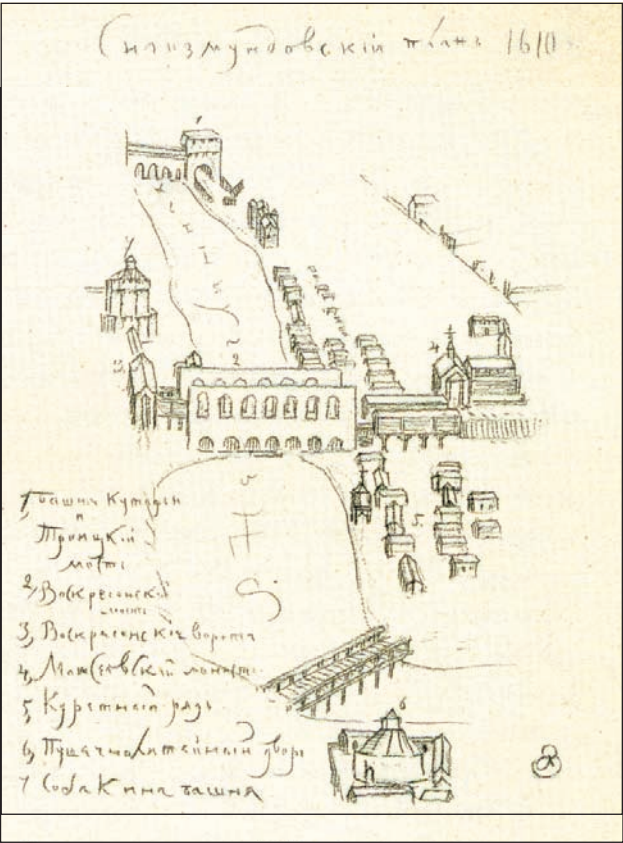 Сигизмундовскій планъ 1610
1
7
3
2
4
5
6
1, Башня Кутафьи
и
Троицкій
мостъ
2, Воскресенскій
мостъ
3, Воскресенскія ворота
4, Моисеевскій монаст
5, Куретный рядъ
6, Пушечнолитейный дворъ
7 Собакина башня